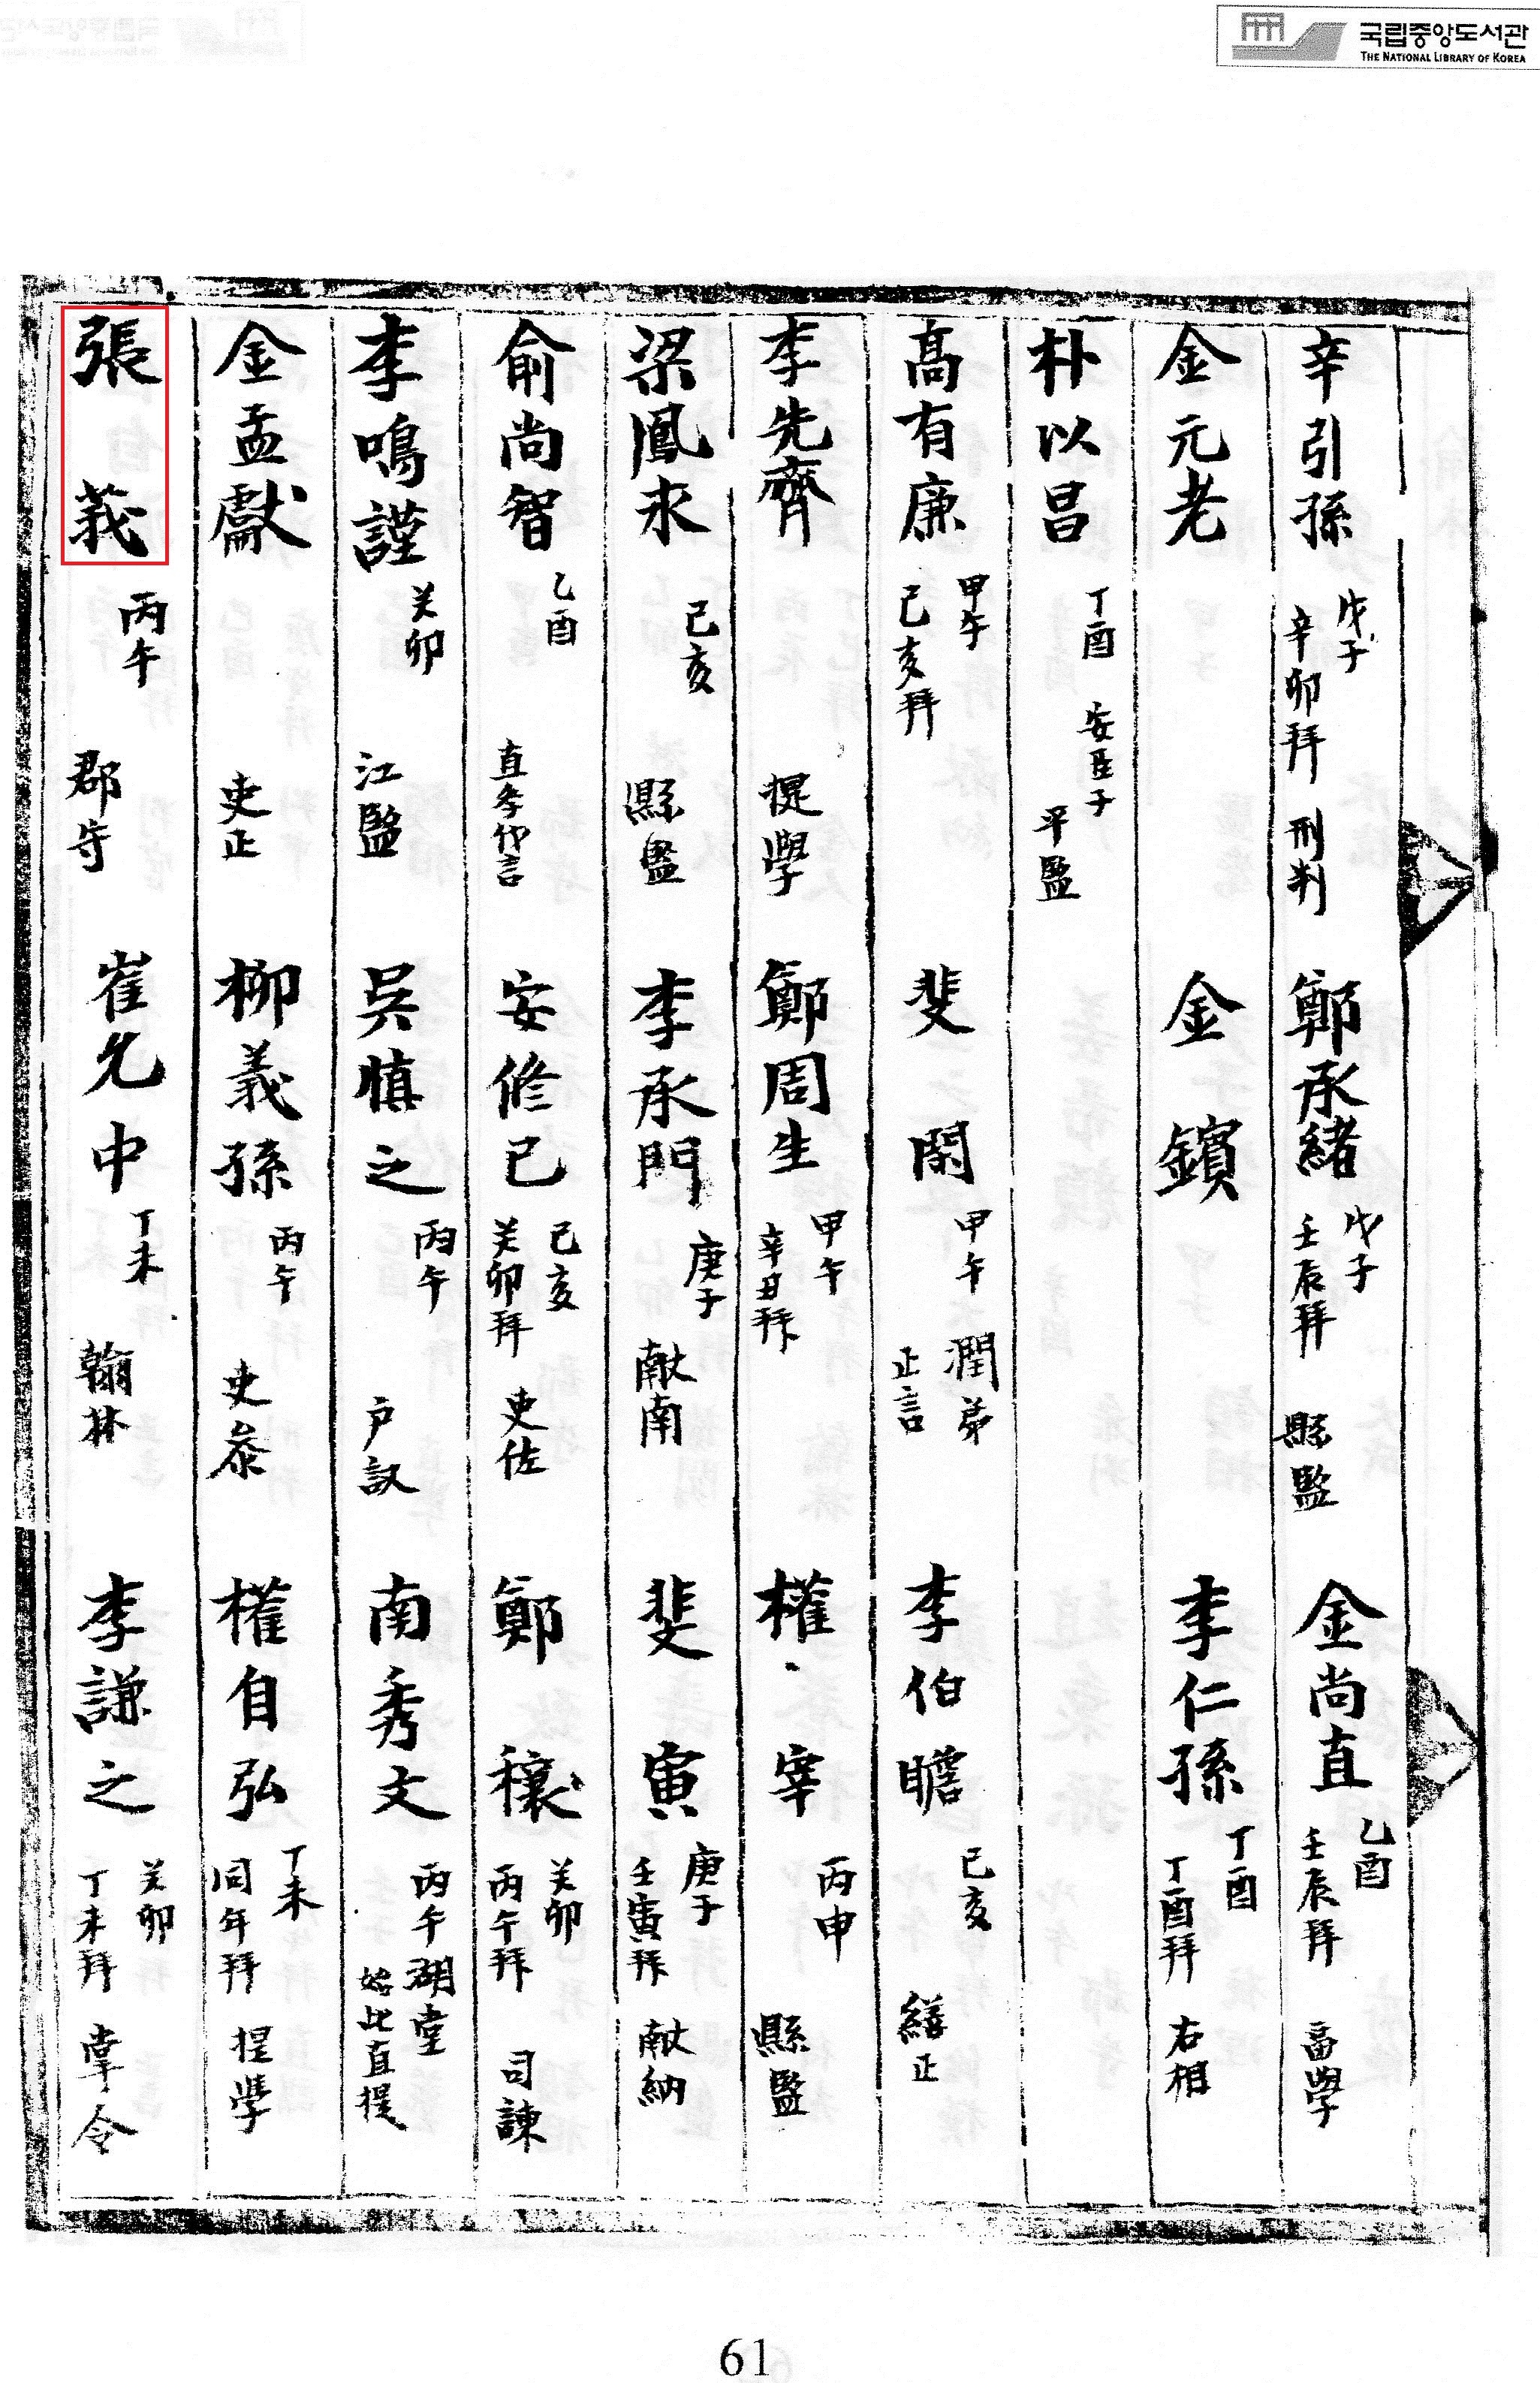 국립중앙도서관
THE NATIONAL LIBRARY OF KOREA
辛引孫 戊子 辛卯拜 刑判 鄭承緖 戊子 壬辰拜 縣監 金尚直 乙酉 壬辰拜 副學
金元老 金鑌 李仁孫 丁酉 丁酉拜 右相
朴以昌 丁酉 安臣子 平監
高有廉 甲午 己亥拜 裴閏 甲午 潤弟 正言 李伯瞻 己亥 繕正
李先齊 提學 鄭周生 甲午 辛丑拜 權宰 丙申 縣監
梁鳳來 己亥 縣監 李承門 庚子 献南 裴寅 庚子 壬寅拜 献納
俞尚智 乙酉 直孝代言 安修己 己亥 癸卯拜 吏佐 鄭穰 癸卯 丙午拜 司諫
李鳴謹 癸卯 江監 吳愼之 丙午 户議 南秀文 丙午 湖堂 始此 直提
金孟獻 吏正 柳義孫 丙午 吏叅 權自弘 丁未 同年拜 提學
張莪 丙午 郡守 崔允中 丁未 翰林 李謙之 癸卯 丁未拜 掌令
61